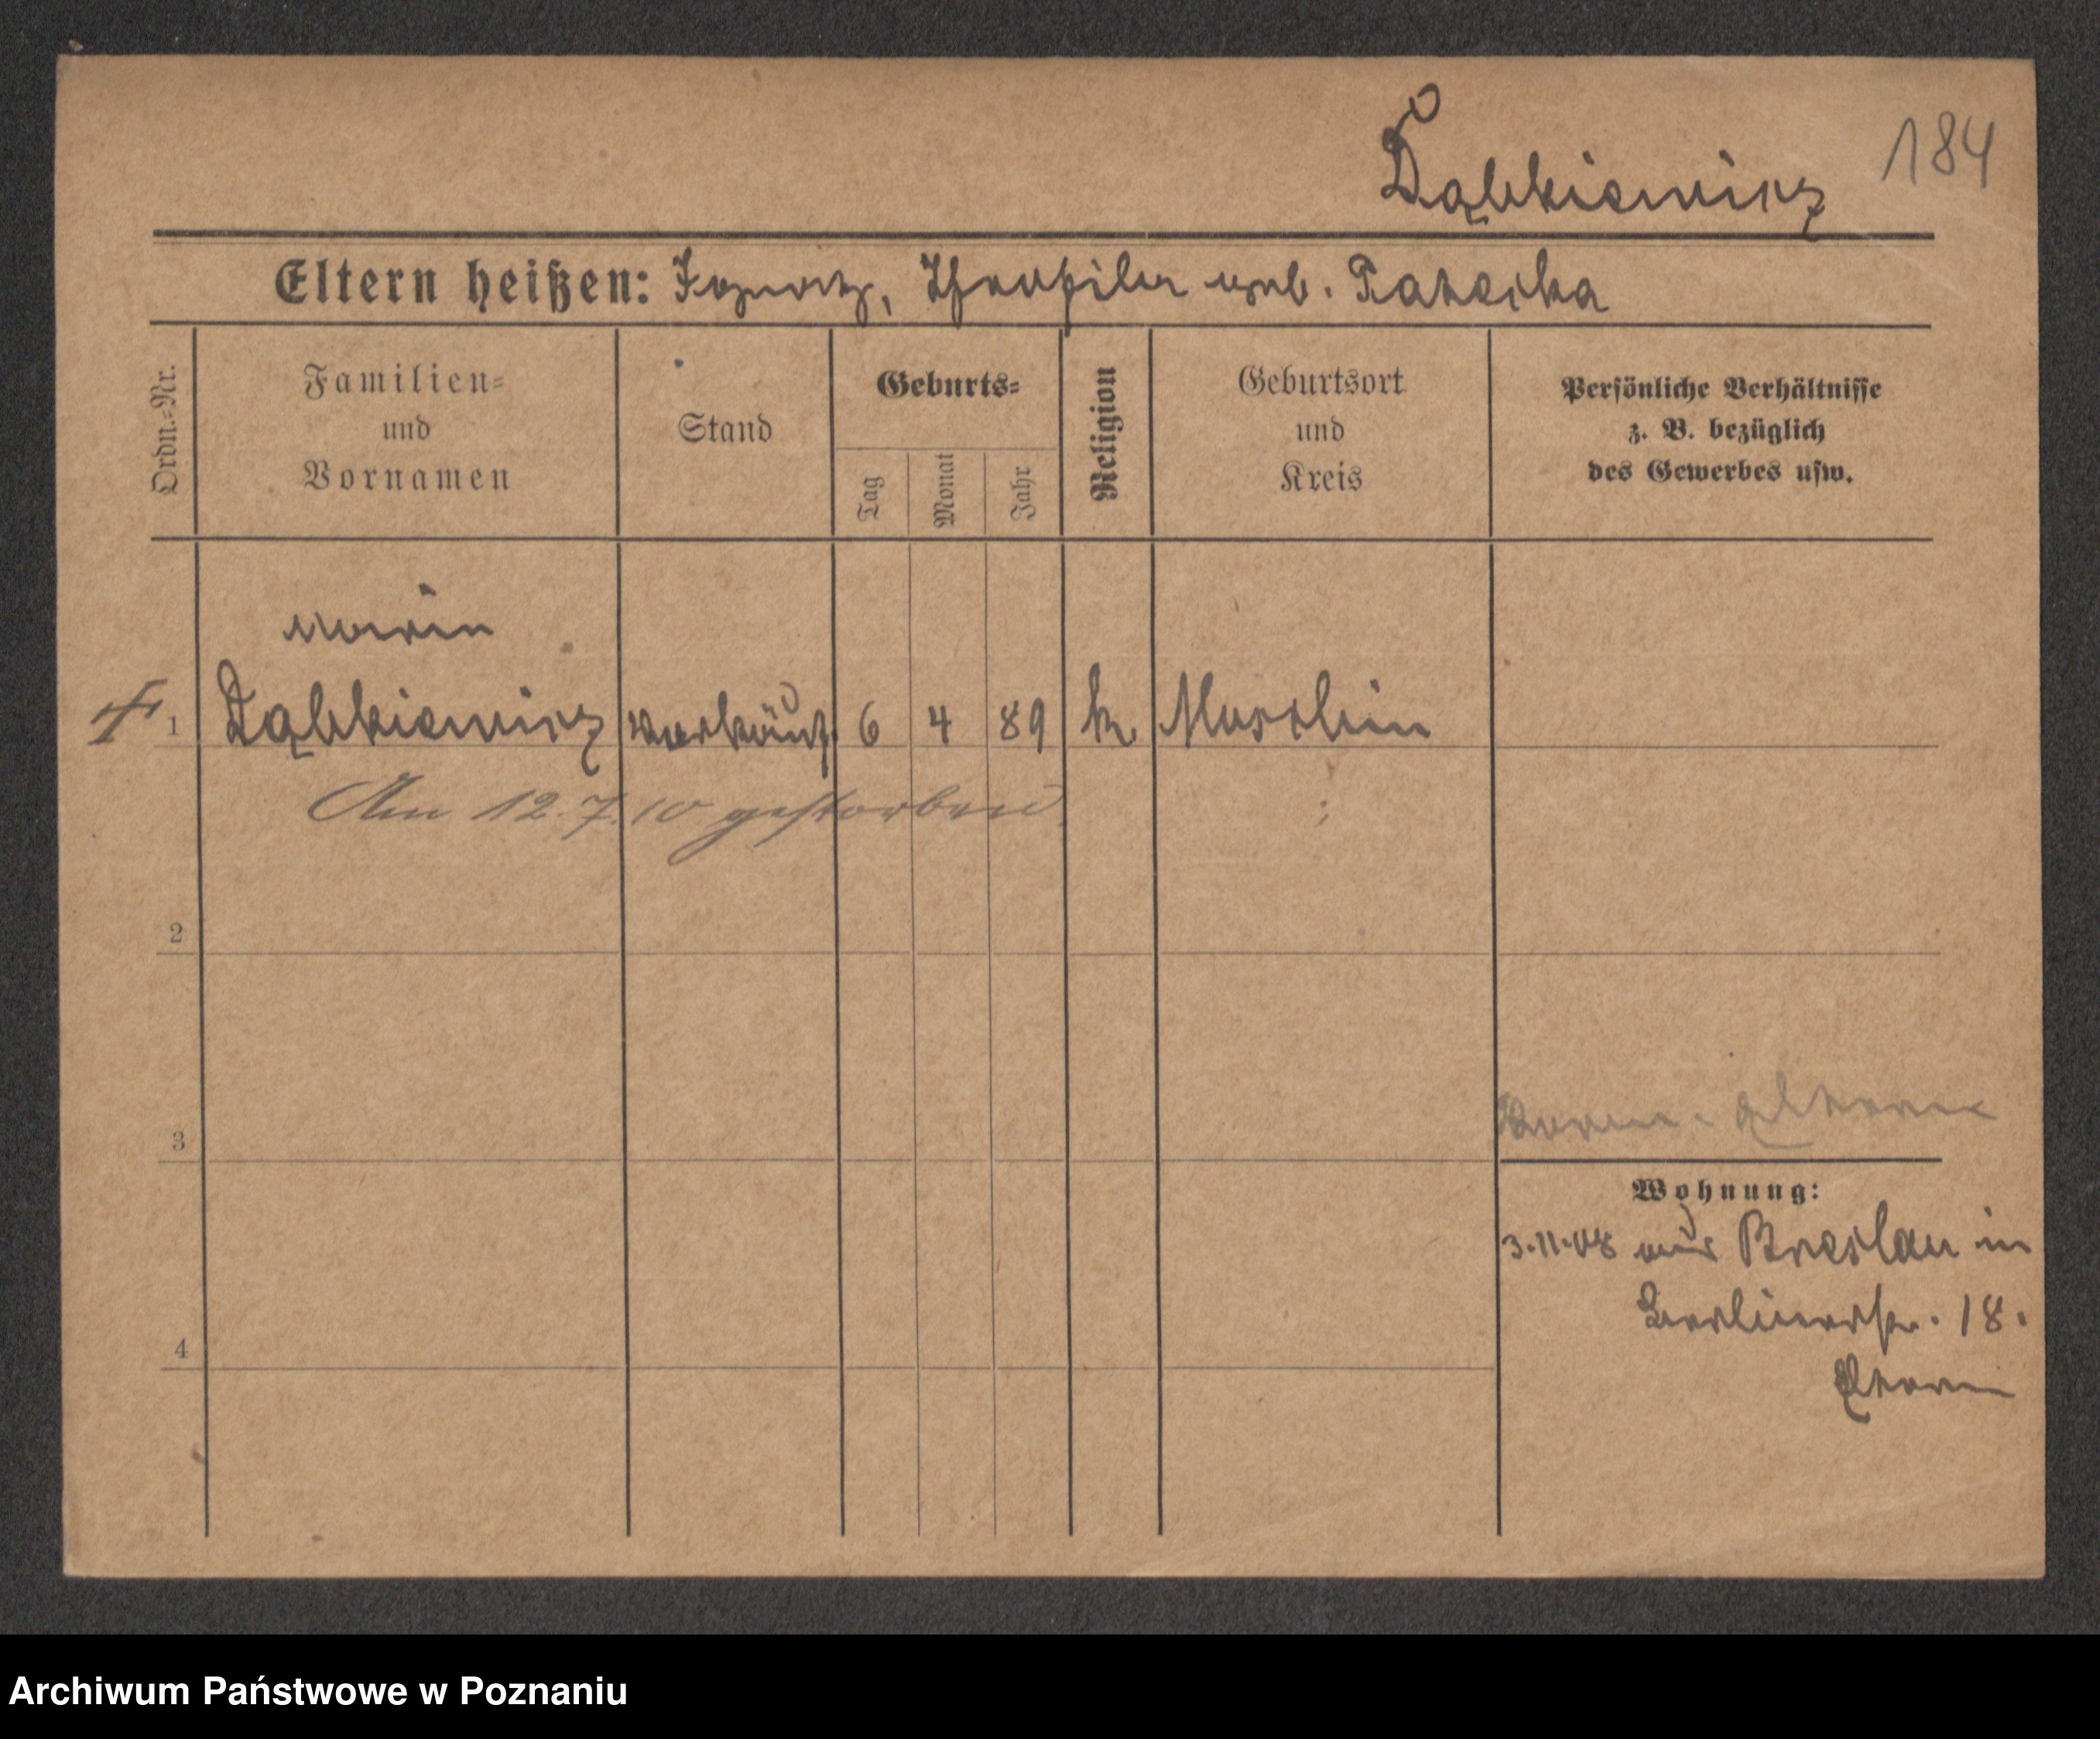 184
Dąbkiewicz
Eltern heißen: Ignatz, Theophila geb. Patecka
Ordn.-Nr.
Familien-
und
Vornamen
Stand
Geburts-
Tag
Monat
Jahr
Religion
Geburtsort
und
Kreis
Persönliche Verhältnisse
z. B. bezüglich
des Gewerbes usw.
Maria
1 Dąbkiewicz Verkäuf. 6 4 89 k. Murzlin
Am 12.7.10 gestorben.
2
3
Eltern
Wohnung:
3.11.08 aus Breslau in
Berlinerstr. 18.
Eltern
4
Archiwum Państwowe w Poznaniu